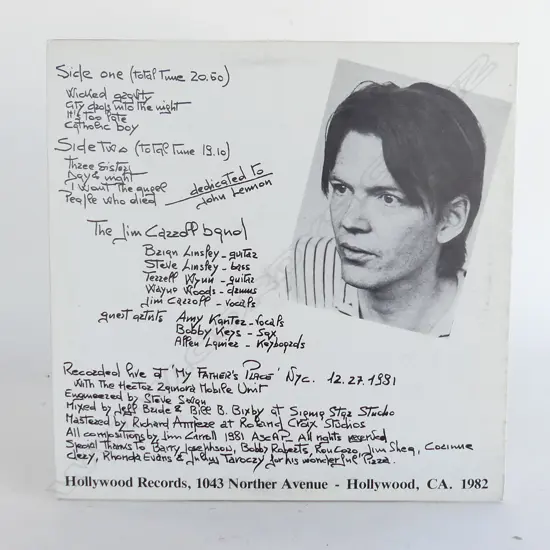 Side one (total time 20.50)
Wicked gravity
City drops into the night
It's too late
Catholic boy
Side Two (total time 19.10)
Three sisters
Day & night
I Want the angel
People who died
dedicated to
John Lennon
The Jim Carroll band
Brian Linsley - guitar
Steve Linsley - bass
Terrell Wynn - guitar
Wayne Woods - drums
Jim Carroll - vocals
guest artists Amy Kanter - vocals
Bobby Keys - Sax
Allen Lanier - Keyboards
Recorded live at "My Father's Place" Nyc. 12.27.1981
With The Hector Mobile Unit
Engineered by Steve
Mixed by Jeff & Bill B. Bixby at Sigma Star Studio
Mastered by Richard at Roland Studios
All compositions by Jim Carroll 1981 Ascap. All rights reserved
Special Thanks To Barry Josephson, Bobby Roberts, Ron Cozo, Jim Shea, Corinne
Rhonda Evans & Taroczy for his wonderful Pizza.
Hollywood Records, 1043 Norther Avenue - Hollywood, CA. 1982